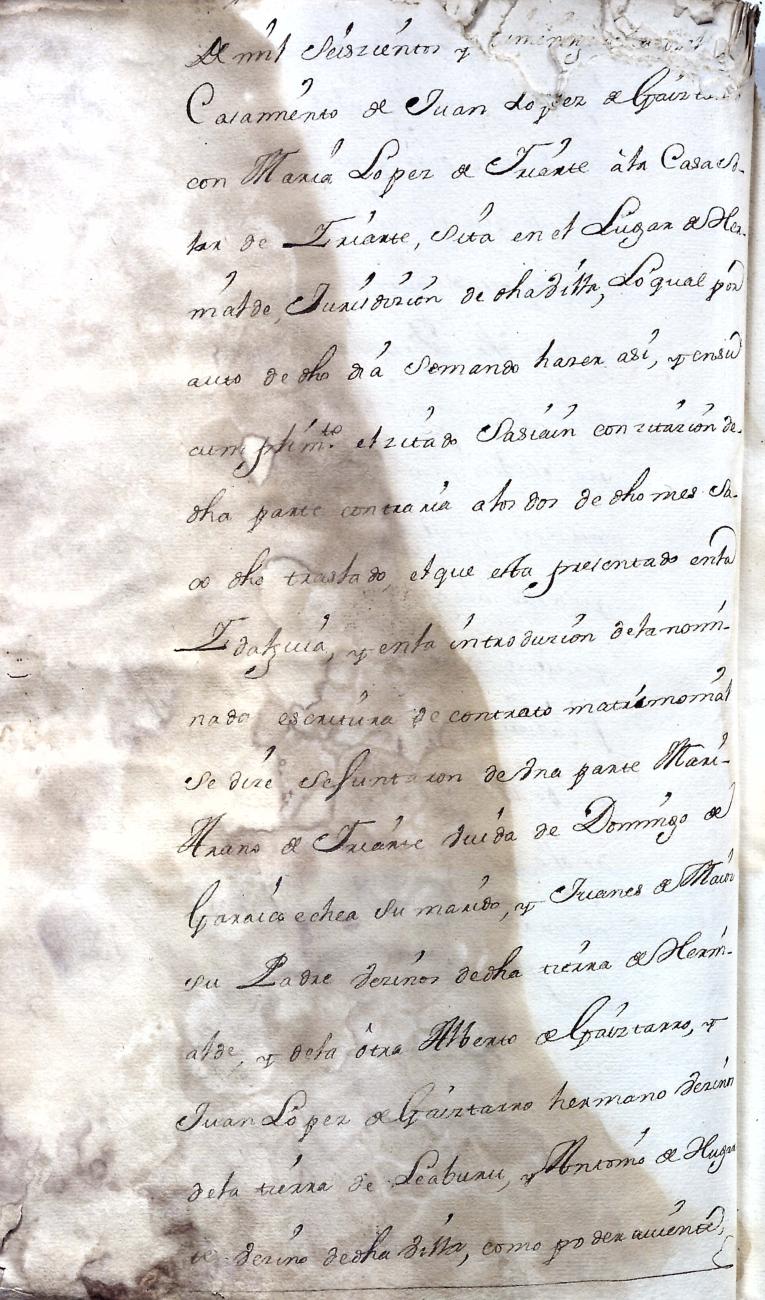 de mil seiszientos y
Casamiento de Juan Lopez de Gaizta
con Maria Lopez de Yriarte à la Casa So-
lar de Yriarte, sita en el Lugar de Her-
nialde, Jurisdizion de dha Villa, Lo qual por
auto de dho dia Semando hazer asi, y ensu
cumplim.to el zitado Sasiain con zitazion de-
dha parte contraria alos dos de dho mes Sa-
co dho traslado, el que esta presentado enla
Ydalguia, y enla introduzion dela nomi-
nada escritura de contrato matrimonial
se dize se Juntaron de Vna parte Mari-
Arano de Yriarte viuda de Domingo de
Garaicoechea su marido, y Juanes de
su Padre Vezinos dedha tierra de Herni-
alde, y dela otra Alberto de Gaiztarro, y
Juan Lopez de Gaiztarro hermano Vezino
dela tierra de Leaburu, y Antonio de
te Vezino dedha Villa, como poder auiente,